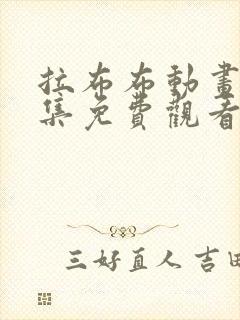 拉布布動畫
集免費觀看
三好直人 吉田